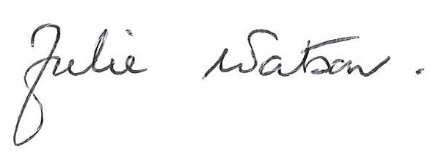 Julie Watson.